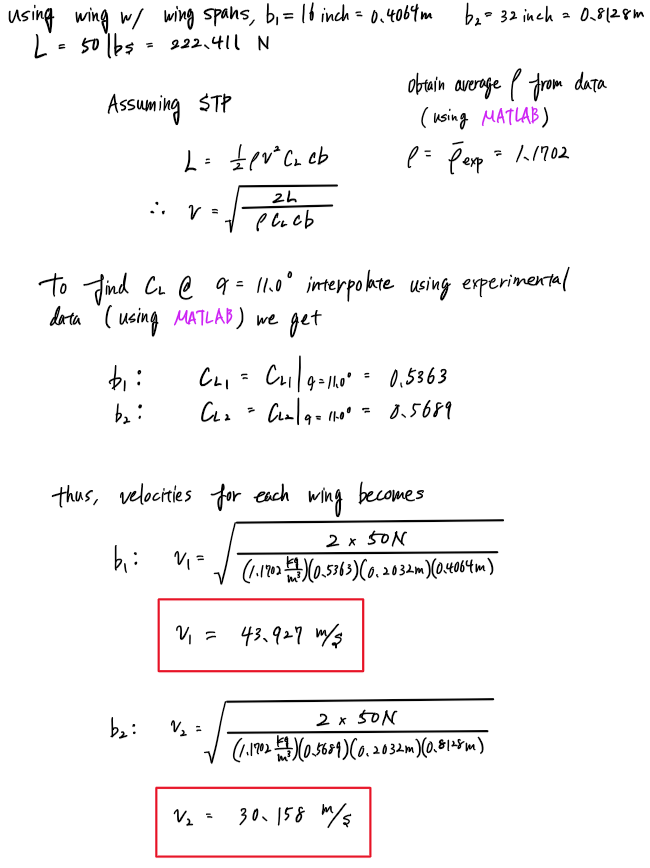 using wing w/ wing spans, b₁ = 16 inch = 0.4064m    b₂ = 32 inch = 0.8128m
L = 50 lbs = 222.411 N
Obtain average ρ from data
(using MATLAB)
Assuming STP
ρ = ρ̄exp = 1.1702
L = ½ρv² C_L cb
∴ v = √(2L / ρ C_L cb)
To find C_L @ q = 11.0° interpolate using experimental
data (using MATLAB) we get
b₁: C_L1 = C_L1|q = 11.0° = 0.5363
b₂: C_L2 = C_L2|q = 11.0° = 0.5689
thus, velocities for each wing becomes
b₁: v₁ = √(2 × 50N / (1.1702 kg/m³)(0.5363)(0.2032m)(0.4064m))
v₁ = 43.927 m/s
b₂: v₂ = √(2 × 50N / (1.1702 kg/m³)(0.5689)(0.2032m)(0.8128m))
v₂ = 30.158 m/s